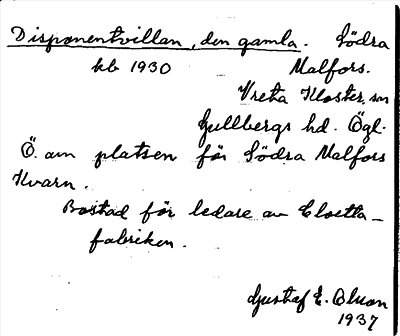 Disponentvillan, den gamla. Södra
kb 1930 Malfors.
Vreta Kloster sn
Gullbergs hd. Ögl.
Ö. om platsen för Södra Malfors
Kvarn.
Bostad för ledare av Cloetta-
fabriken.
Gustaf E. Olson
1937